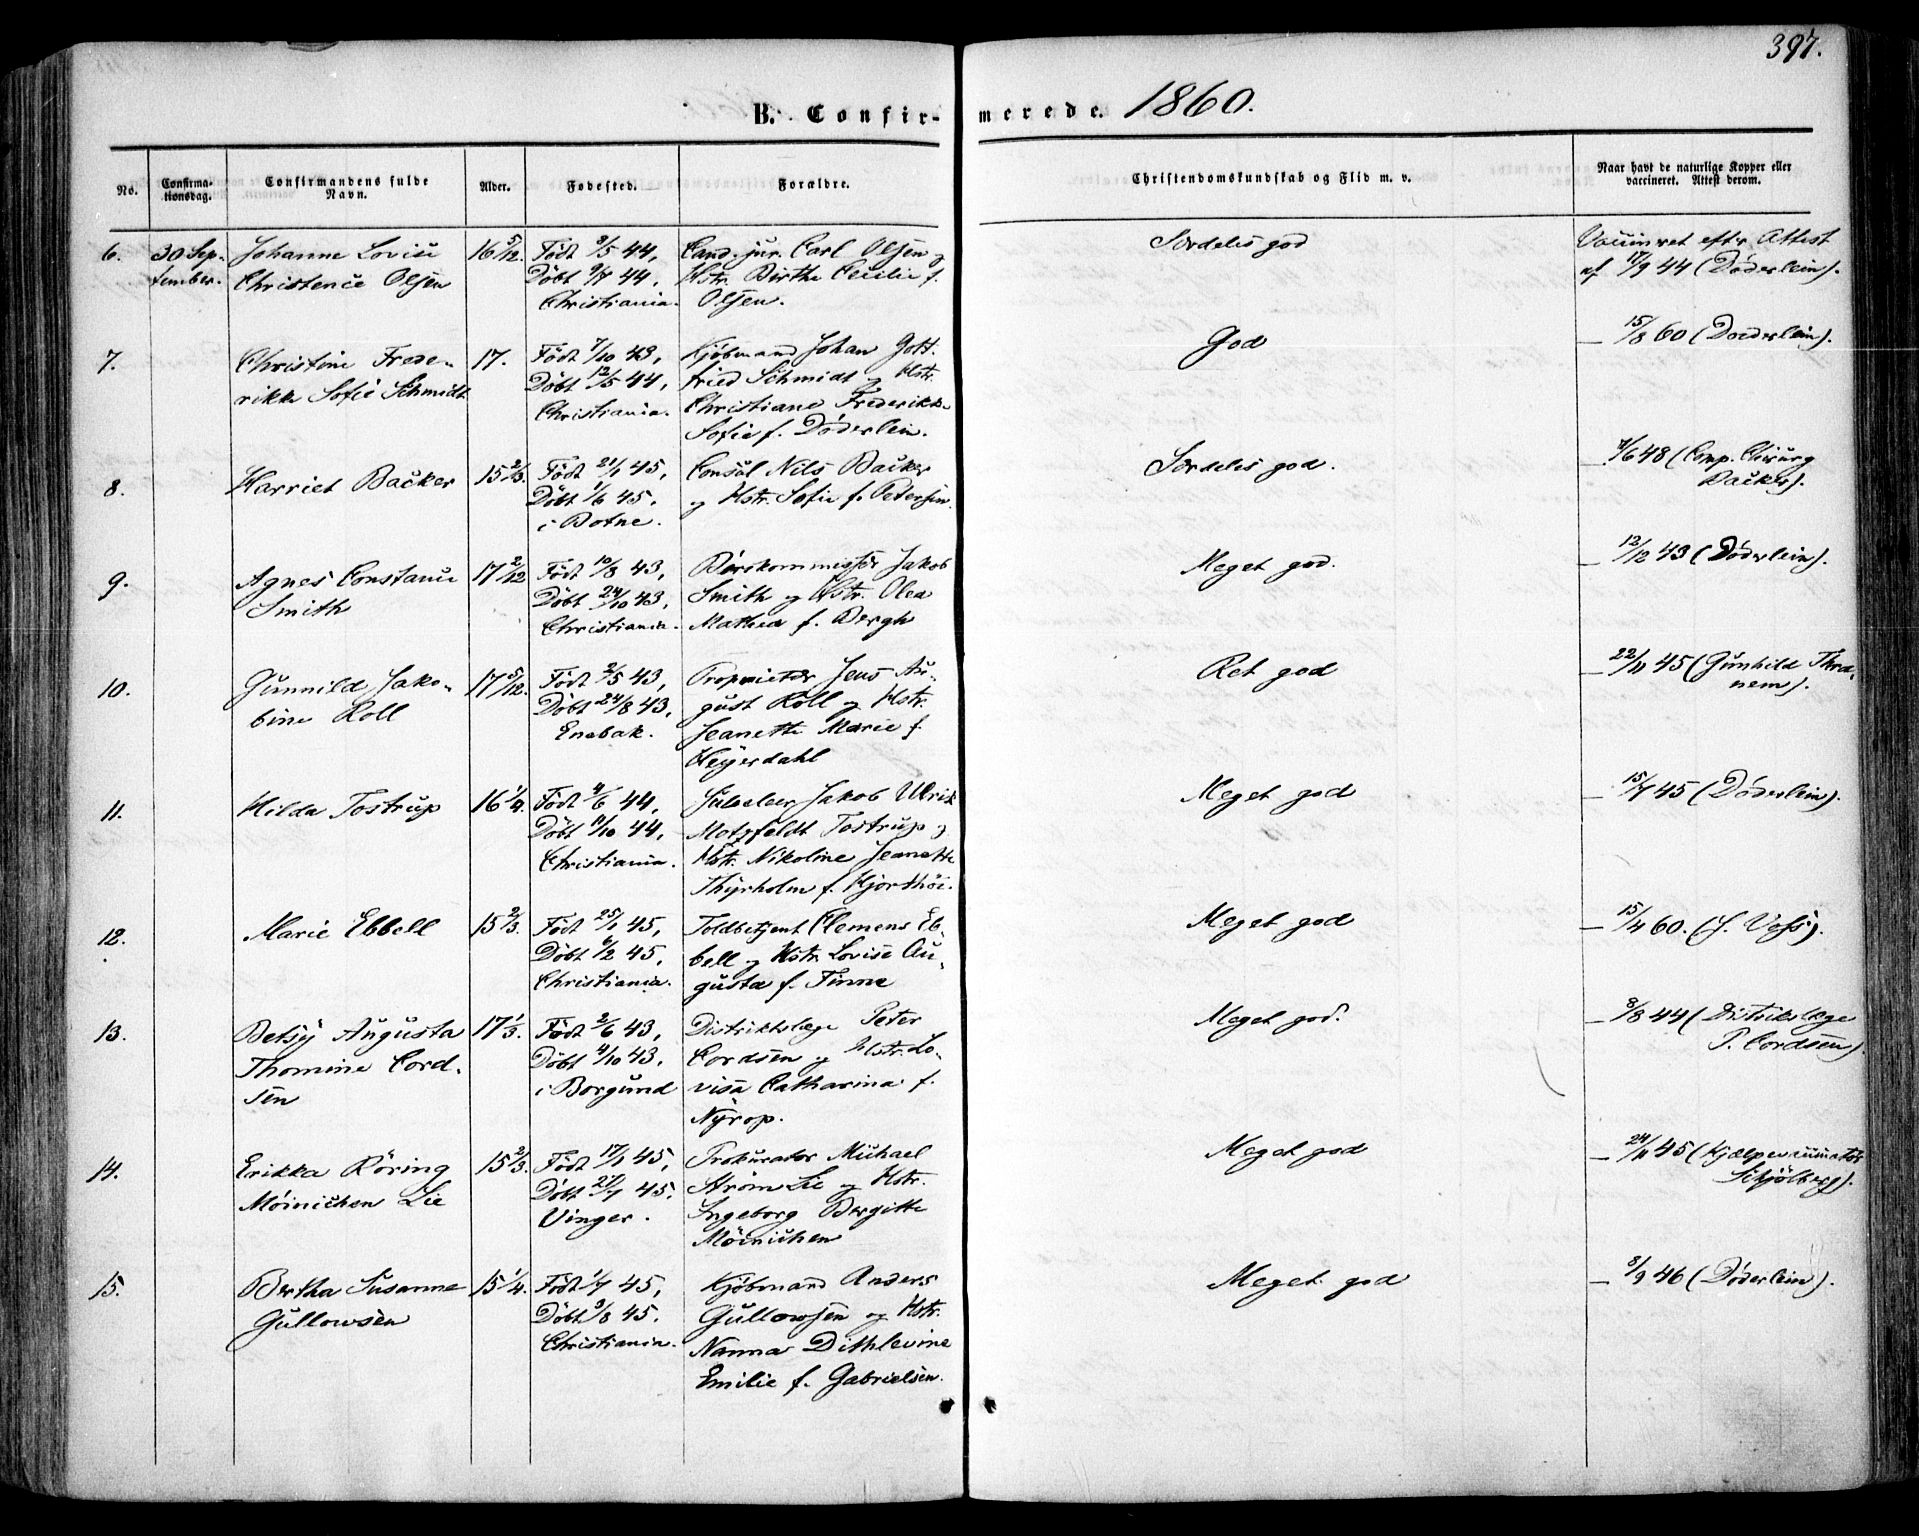 397.
B. Confir-merede. 1860.
No.
Confirma-
tionsdag.
Confirmandens fulde
Navn.
Alder.
Fødested.
Forældre.
Christendomskundskab og Flid m. v.
Naar havt de naturlige Kopper eller
vaccineret. Attest derom.
6. 30 Sep- Johanne Lovise 16 5/12. Født 3/5 44, Cand. jur. Carl Olsen og Særdeles god Vaccineret eftr Attest
tember. Christence Olsen Døbt 9/8 44, Hstr. Birthe Cecilie f. af 17/9 44 (Døderlein).
Christiania. Olsen.
7. Christine Frede- 17. Født 7/10 43, Kjøbmand Johan Gott- God — 15/8 60 (Døderlein).
rikke Sofie Schmidt Døbt 12/5 44, fried Schmidt og Hstr.
Christiania. Christiane Frederikke
Sofie f. Døderlein.
8. Harriet Backer 15 2/3. Født 21/1 45, Consul Nils Backer Særdeles god. — 11/6 48 (Comp. Chirurg
Døbt 1/6 45, og Hstr. Sofie f. Petersen. Backer).
i Botne.
9. Agnes Constance 17 2/12 Født 10/8 43, Børskommissær Jakob Meget god. — 12/12 43 (Døderlein).
Smith Døbt 24/10 43, Smith og Hstr. Olea
Christiania. Mathea f. Bergh
10. Gunnild Jako- 17 5/12. Født 2/5 43, Proprietær Jens Au- Ret god — 22/11 45 (Gunhild Thra-
bine Roll Døbt 24/8 43, gust Roll og Hstr. nem).
Enebak. Jeanette Marie f.
Heyerdahl
11. Hilda Tostrup 16 1/4. Født 4/6 44, Juveleer Jakob Ulrik Meget god — 15/7 45 (Døderlein).
Døbt 11/10 44, Motzfeldt Tostrup og
Christiania. Hstr. Nikoline Jeanette
Thyrholm f. Hjorthöi.
12. Marie Ebbell 15 2/3. Født 25/1 45, Toldbetjent Clemens Eb- Meget god — 15/4 60. (J. Voss).
Døbt 6/2 45, bell og Hstr. Lovise Au-
Christiania. gusta f. Finne
13. Betsy Augusta 17 1/3. Født 2/6 43, Distriktslæge Peter Meget god. — 3/8 44 (Distrikslæge
Thomine Cord- Døbt 4/10 43, Cordsen og Hstr. Lo- P. Cordsen).
sen i Borgund visa Catharina f.
Nyrop.
14. Erikka Röring 15 2/3. Født 17/1 45, Prokurator Michael Meget god — 24/11 45 (Hjælpevaccinatör
Möinichen Lie Døbt 21/7 45. Ström Lie og Hstr. Schjölberg).
Vinger. Ingeborg Bergitte
Möinichen
15. Bertha Susanne 15 1/4. Født 1/7 45, Kjøbmand Anders Meget god — 3/9 46 (Døderlein).
Gullowsen Døbt 3/8 45. Gullowsen og Hstr.
Christiania. Nanna Dithlevine
Emilie f. Gabrielsen.